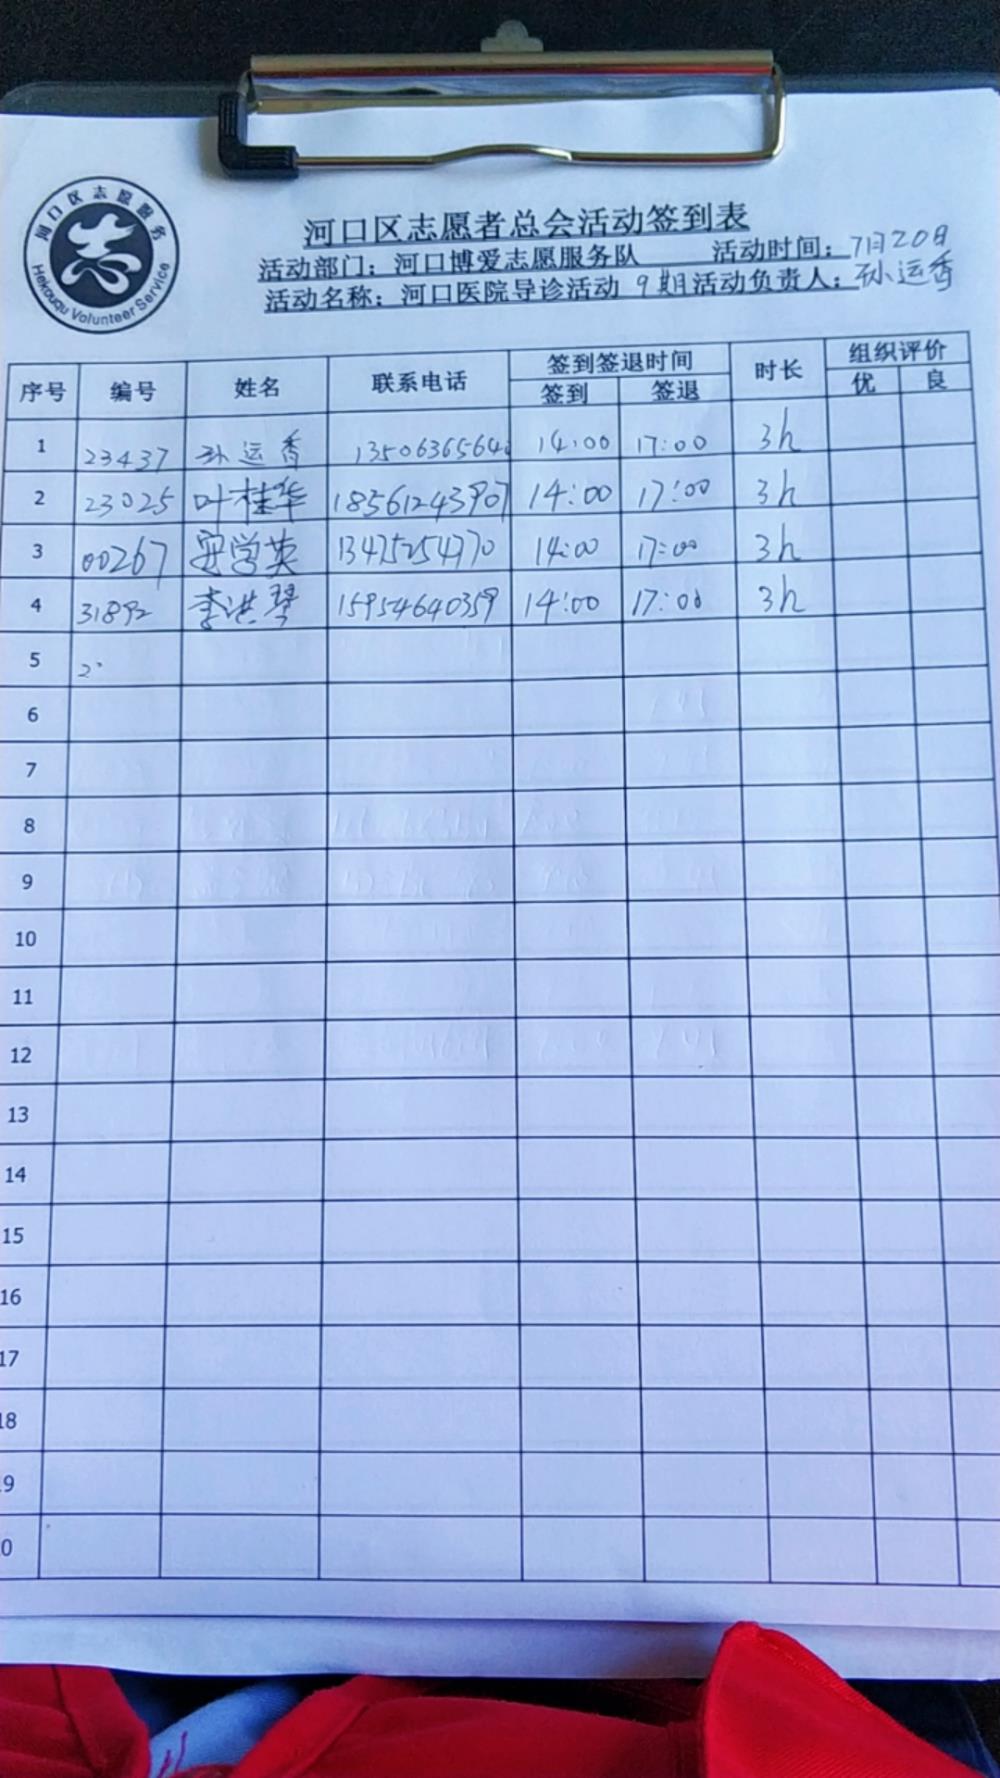 河口区志愿服务
Hekouqu Volunteer Service
河口区志愿者总会活动签到表
活动部门：河口博爱志愿服务队 活动时间：7月20日
活动名称：河口医院导诊活动 9期 活动负责人：孙运香
序号 编号 姓名 联系电话 签到签退时间 时长 组织评价
签到 签退 优 良
1 23437 孙运香 1350636564 14:00 17:00 3h
2 23025 叶桂华 18561243907 14:00 17:00 3h
3 00267 安学英 13475254770 14:00 17:00 3h
4 31892 李洪琴 15954640359 14:00 17:00 3h
5
6
7
8
9
10
11
12
13
14
15
16
17
18
9
0